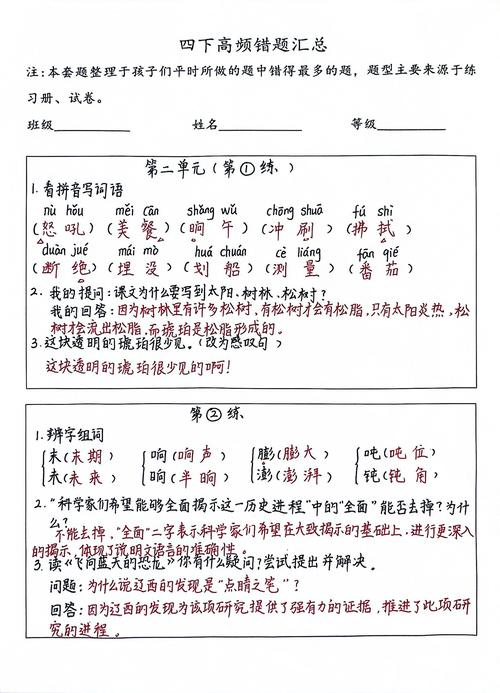 四下高频错题汇总
注:本套题整理于孩子们平时所做的题中错得最多的题，题型主要来源于练
习册、试卷。
班级__________ 姓名__________ 等级__________
第二单元(第①练、)
1. 看拼音写词语
nù hǒu měi cān shǎng wǔ chōng shuā fú shì
(怒吼) (美餐) (晌午) (冲刷) (拂拭)
duàn jué mái mò huá chuán cè liáng fān qié
(断绝) (埋没) (划船) (测量) (番茄)
2. 我的提问:课文为什么要写到太阳、树林、松树?
我的回答:因为树林里有许多松树,有松树才会有松脂,只有太阳炎热,松
树才会流出松脂,而琥珀是松脂形成的。
3. 这块透明的琥珀很少见。(改为感叹句)
这块透明的琥珀很少见的啊!
第②练、
1. 辨字组词
末(末期) 响(响声) 膨(膨大) 吨(吨位)
未(未来) 晌(半晌) 澎(澎湃) 钝(钝角)
2. “科学家们希望能够全面揭示这一历史进程”中的“全面”能否去掉?为什
么?
不能去掉,“全面”二字表示科学家们希望在大致揭示的基础上,进行更深入
的揭示,体现了说明文语言的准确性。
3. 读《飞向蓝天的恐龙》你有什么疑问?尝试提出并解决。
问题:为什么说辽西的发现是“点睛之笔”?
回答:因为辽西的发现为该项研究提供了强有力的证据,推进了此项研
究的进程。